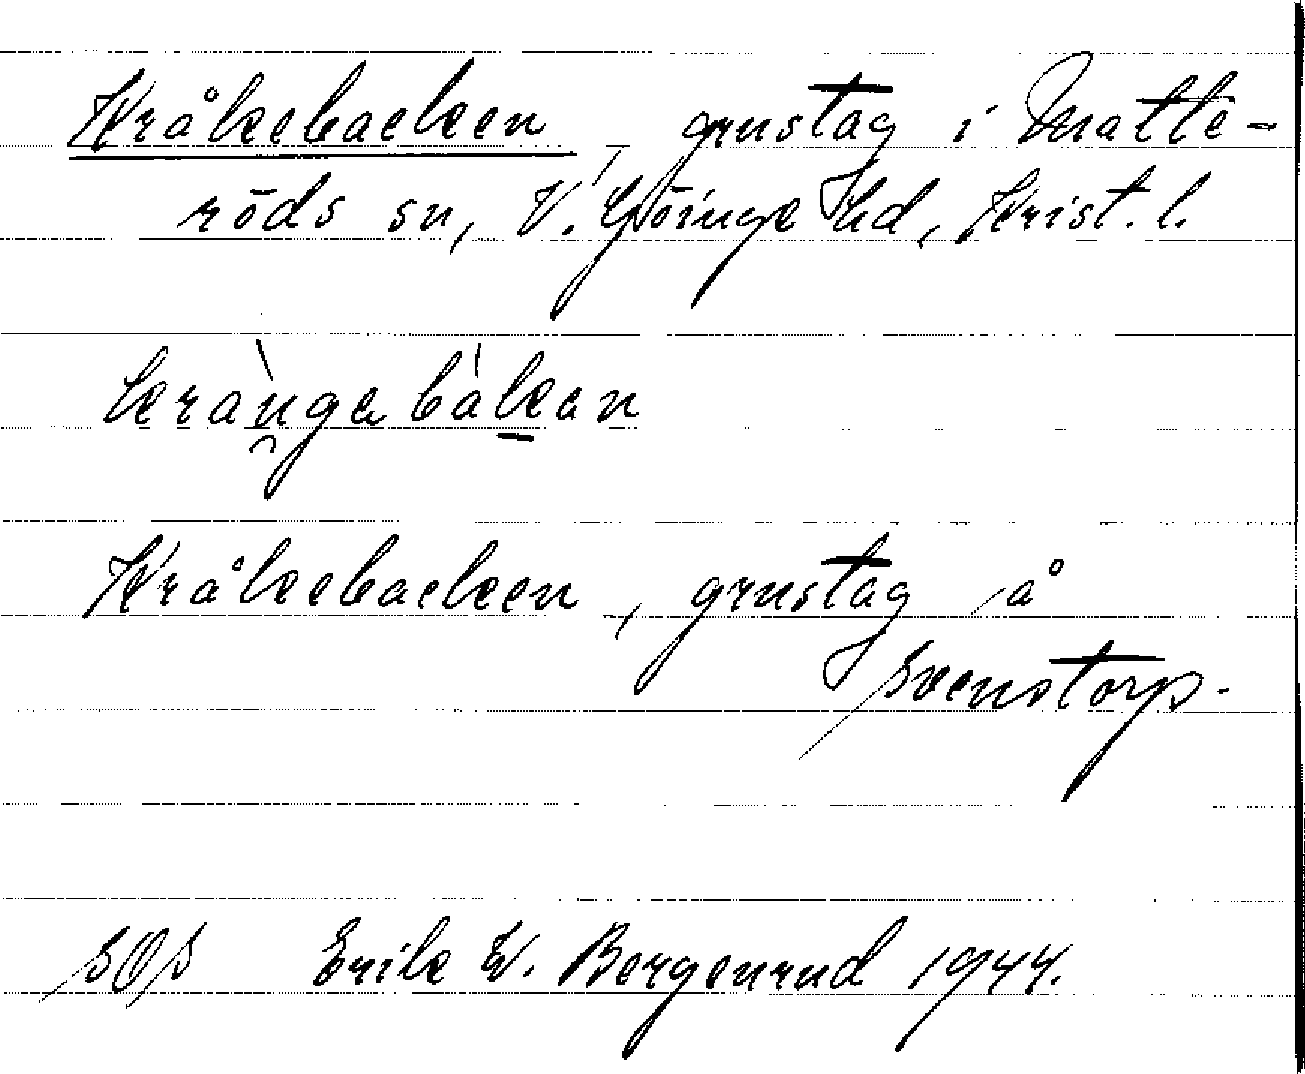 Kråkebacken, grustag i Matte-
röds sn, V. Göinge hd, Krist. l.
Kråkebacken, grustag å
Svenstorp.
SOS Erik W. Bergenrud 1944.